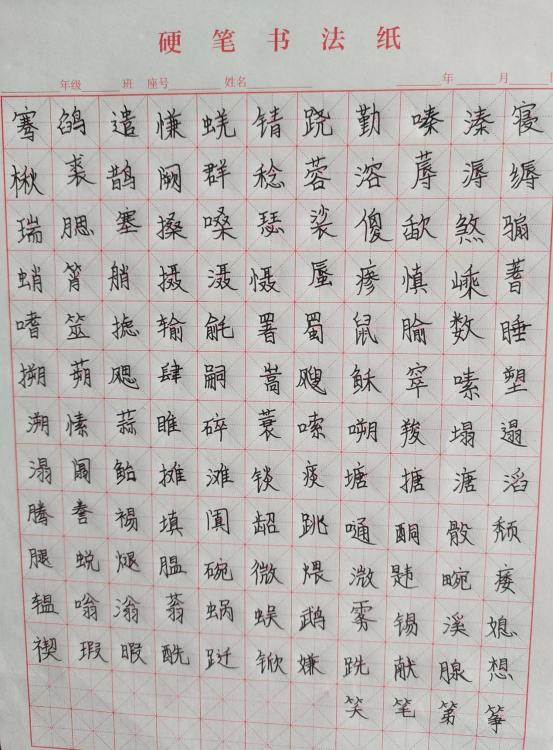 硬笔书法纸
年级 班 座号 姓名 年 月
骞 鹐 遣 慊 蜣 锖 跷 勤 嗪 溱 寝
楸 裘 鹊 阙 群 稔 蓉 溶 蓐 溽 缛
瑞 腮 塞 搡 嗓 瑟 裟 傻 歃 煞 骟
蛸 筲 艄 摄 滠 慑 蜃 瘆 慎 嵊 蓍
嗜 筮 摅 输 毹 署 蜀 鼠 腧 数 睡
搠 蒴 飔 肆 嗣 嵩 飕 稣 窣 嗉 塑
溯 愫 蒜 睢 碎 蓑 嗦 嗍 羧 塌 遢
溻 阘 鲐 摊 滩 锬 痰 塘 搪 溏 滔
腾 誊 裼 填 阗 龆 跳 嗵 酮 骰 颓
腿 蜕 煺 腽 碗 微 煨 溦 韪 畹 痿
韫 嗡 滃 蓊 蜗 蜈 鹉 雾 锡 溪 媳
禊 瑕 暇 酰 跹 锨 嫌 跣 献 腺 想
笑 笔 第 筝